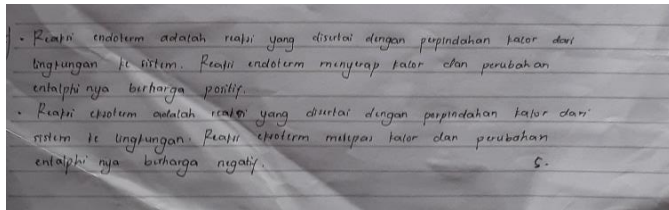 • Reaksi endoterm adalah reaksi yang disertai dengan perpindahan kalor dari
lingkungan ke sistem. Reaksi endoterm menyerap kalor dan perubahan
entalphi nya berharga positif.
• Reaksi eksoterm adalah reaksi yang disertai dengan perpindahan kalor dari
sistem ke lingkungan. Reaksi eksoterm melepas kalor dan perubahan
entalphi nya berharga negatif.
5.